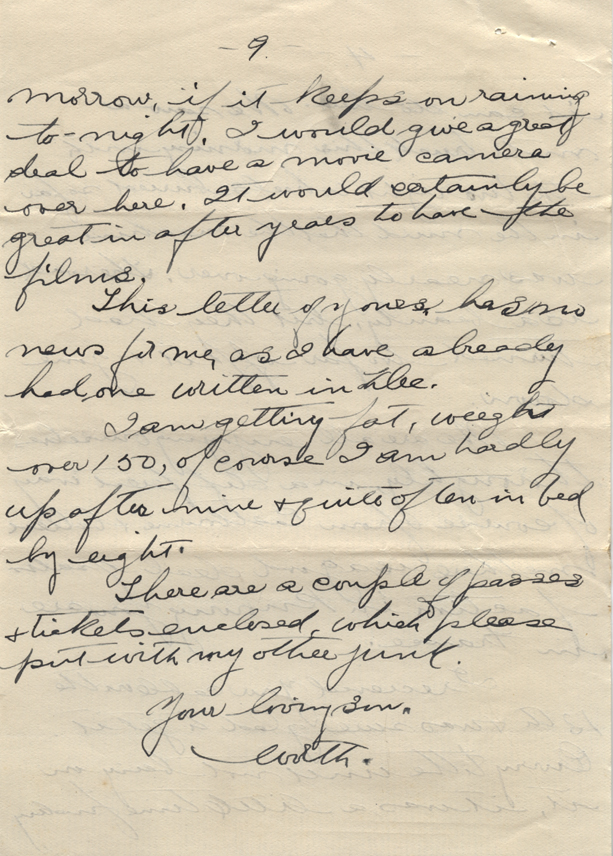 -9.-
morrow, if it keeps on raining
to-night. I would give a great
deal to have a movie camera
over here. It would certainly be
great in after years to have the
films.
This letter of yours, has no
news for me, as I have already
had one written in Dec.
I am getting fat, weight
over 150, of course I am hardly
up after nine & quite often in bed
by eight.
There are a couple of passes
& tickets enclosed, which please
put with my other junk.
Your loving son.
Worth.